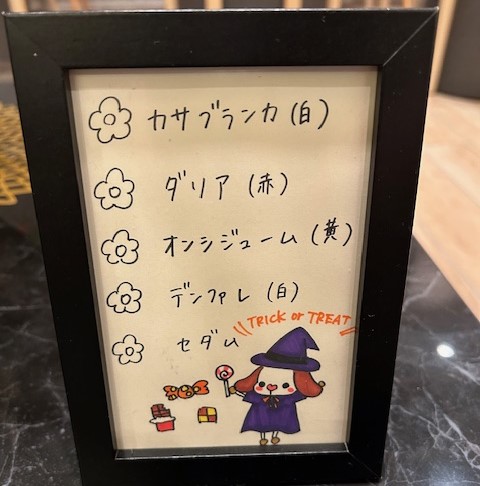 カサブランカ (白)
ダリア (赤)
オンシジューム (黄)
デンファレ (白)
セダム
TRICK or TREAT